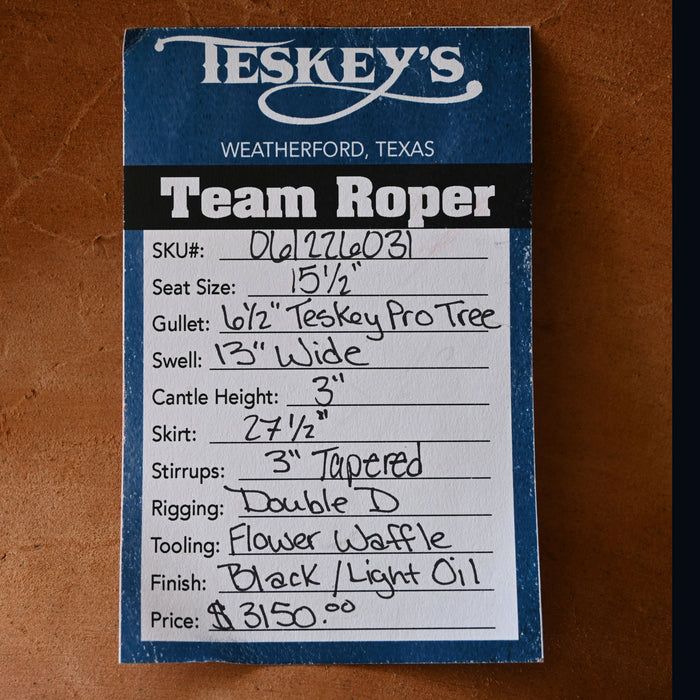 TESKEY'S
WEATHERFORD, TEXAS
Team Roper
SKU#: 061226031
Seat Size: 15 1/2"
Gullet: 6 1/2" Teskey Pro Tree
Swell: 13" Wide
Cantle Height: 3"
Skirt: 27 1/2"
Stirrups: 3" Tapered
Rigging: Double D
Tooling: Flower Waffle
Finish: Black / Light Oil
Price: $3150.00